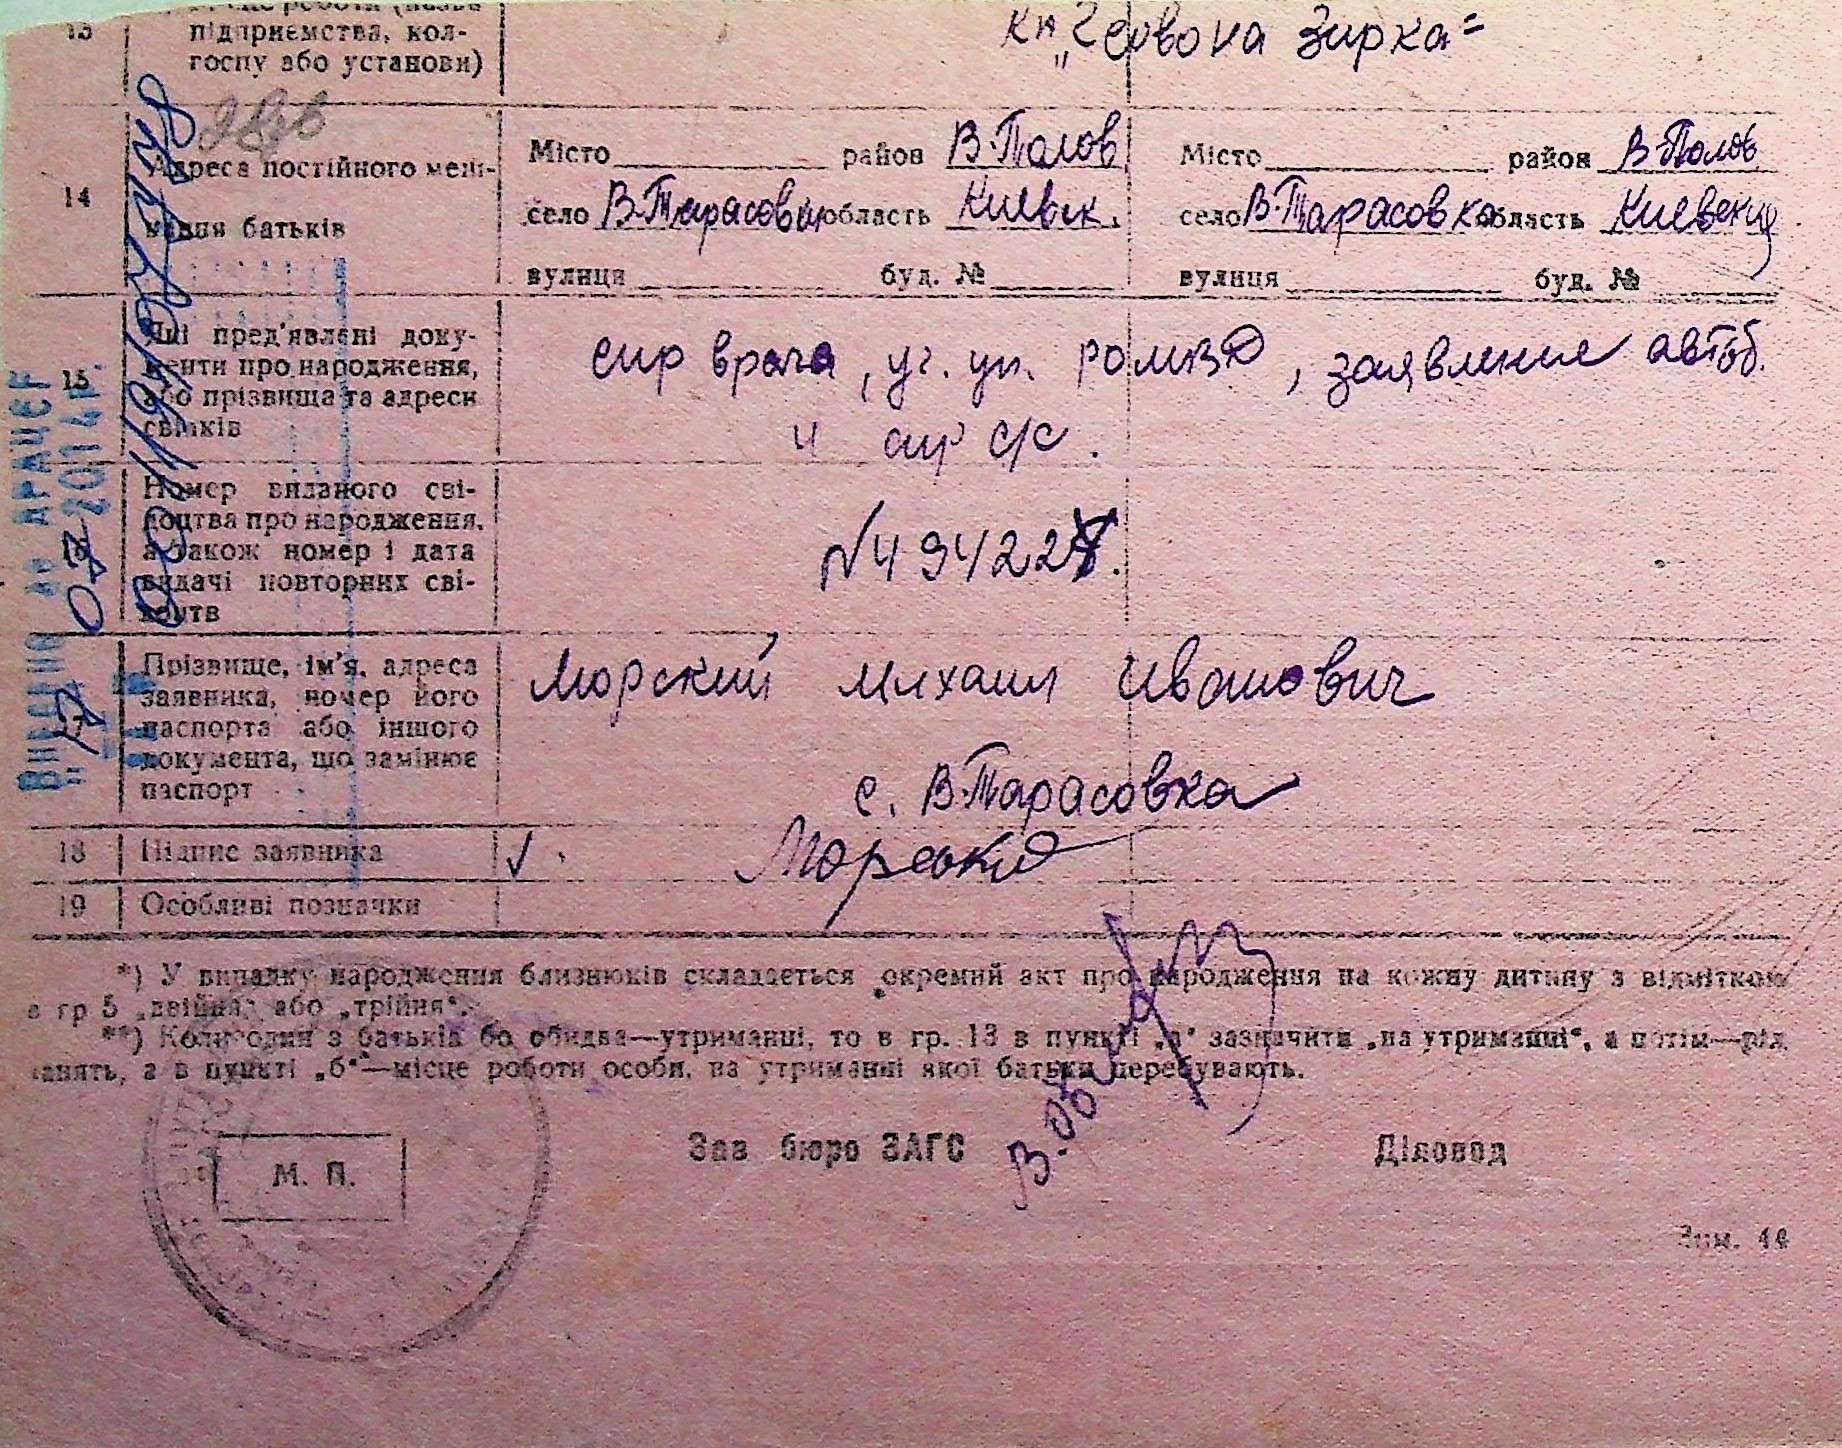 13
підприємства, кол-
госпу або установи)
"Червона Зирка"
14
Адреса постійного меш-
кання батьків
Місто район В-Полов
село В-Тарасовка область Киевск.
вулиця буд. №
Місто район В-Полов
село В-Тарасовка область Киевский
вулиця буд. №
15
Які пред'явлені доку-
менти про народження,
або прізвища та адреси
свідків
спр врача, уг. уп. РОМВД, заявление
и спр с/с.
16
Номер виданого сві-
доцтва про народження,
а також номер і дата
видачі повторних сві-
доцтв
17
Прізвище, ім'я, адреса
заявника, номер його
паспорта або іншого
документа, що замінює
паспорт
Морский Михаил Иванович
с. В-Тарасовка
18
Підпис заявника
19
Особливі позначки
*) У випадку народження близнюків складається окремий акт про народження на кожну дитину з відміткою
в гр 5 „двійня" або „трійня".
**) Коли один з батьків бо обидва—утриманці, то в гр. 13 в пункті „а" зазначити „на утриманні", а потім—рід
занять, а в пункті „б"—місце роботи особи, на утриманні якої батьки перебувають.
Зав бюро ЗАГС
Діловод
М. П.
ДРАЦСГ
2014 р.